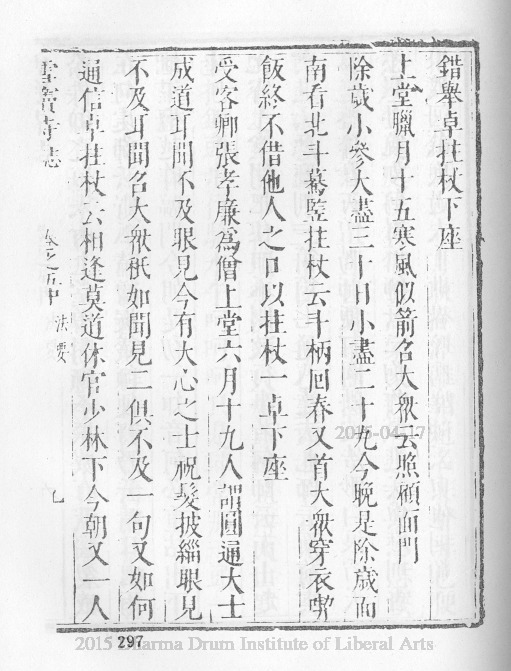 錯舉卓拄杖下座
上堂臘月十五寒風似箭名大衆云照顧面門
除歲小參大盡三十日小盡二十九今晚是除歲面
南看北斗驀竪拄杖云斗柄回春又首大衆穿衣喫
飯終不借他人之口以拄杖一卓下座
受客卿張孝廉爲僧上堂六月十九人謂圓通大士
成道耳聞不及眼見今有大心之士祝髮披緇眼見
不及耳聞名大衆秖如聞見二俱不及一句又如何
通信卓拄杖云相逢莫道休官少林下今朝又一人
雲賓寺志
卷之五中
法要
九
2015-04-17
297
2015 Dharma Drum Institute of Liberal Arts